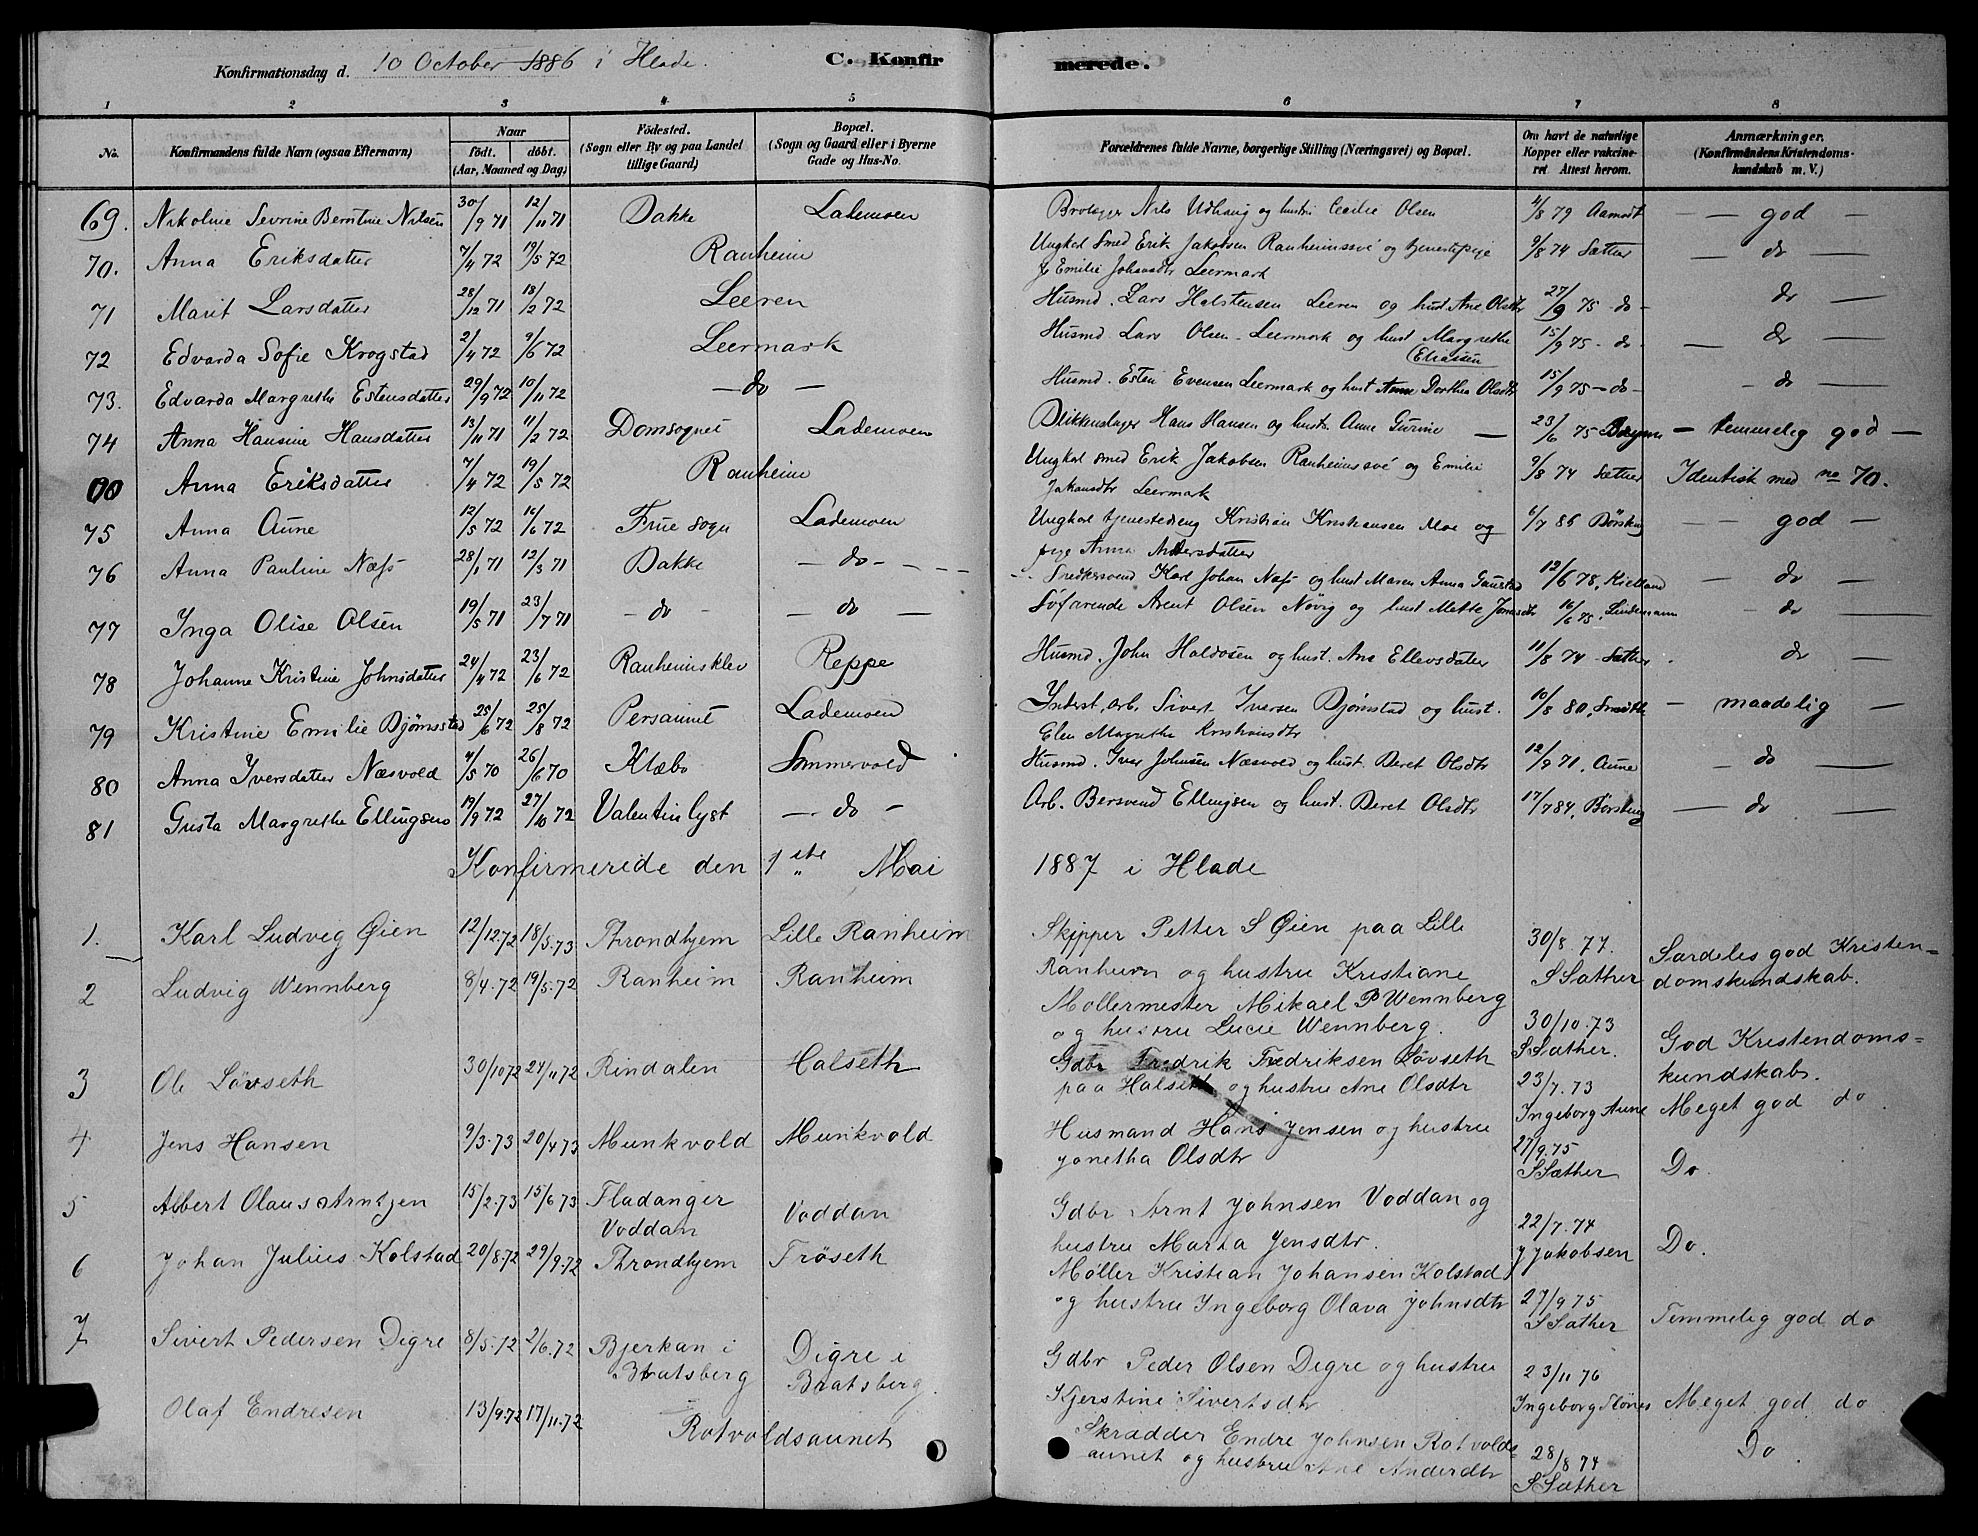 Konfirmationsdag d. 10 October 1886 i Hlade. C. Konfirmerede.
1 2 3 4 5 6 7 8
No. Konfirmandens fulde Navn (ogsaa Efternavn) Naar født. døbt. (Aar, Maaned og Dag) Fødested. (Sogn eller By og paa Landet tillige Gaard) Bopæl. (Sogn og Gaard eller i Byerne Gade og Hus-No. Forældrenes fulde Navne, borgerlige Stilling (Næringsvei) og Bopæl. Om havt de naturlige Kopper eller vakcineret. Attest herom. Anmærkninger. (Konfirmandens Kristendomskundskab m. V.)
69. Nikoline Sevrine Berntine Nilsen 30/9 71 12/11 71 Bakke Lademoen Nils Udhaug og hustru Cecilie Olsen 4/8 79 Aamodt — — god —
70. Anna Eriksdatter 7/4 72 19/5 72 Ranheim Ungkal Smed Erik Jakobsen Ranheimssvé og tjenestepige 9/8 74 Sæther — do —
Emilie Johansdtr Leermark
71 Marit Larsdatter 28/12 71 18/2 72 Leeren Husmd. Lars Halstensen Leeren og hust Ane Olsdtr 27/9 75 - do - do —
72 Edvarda Sofie Krogstad 2/4 72 9/6 72 Leermark Husmd. Lars Olsen Leermark og hust Margrethe 15/9 75 - do - — do —
(Eliassen
73. Edvarda Margrethe Estensdatter 29/9 72 10/11 72 — do — Husmd. Esten Evensen Leermark og hust Anne Dorthea Olsdtr 15/9 75 - do - - do —
74 Anna Hansine Hansdatter 13/11 71 11/2 72 Domsognet Lademoen Blikkenslager Hans Hansen og hustr. Anne Gurine — 23/6 75 — temmelig god —
00 Anna Eriksdatter 7/4 72 19/5 72 Ranheim Ungkal smed Erik Jakobsen Ranheimssvé og Emilie 9/8 74 Sæther Identisk med no 70.
Leermark
75 Anna Aune 12/5 72 16/6 72 Frue sogn Lademoen Ungkal tjenestedreng Kristian Kristiansen Moe og 6/7 86 — — god —
pige Anna Andersdatter
76 Anna Pauline Næss 28/1 71 12/3 71 Bakke — do - - - - Snedkersvend Karl Johan Næss og hust Maren Anna Gaustad 12/6 78, Kielland — do —
77 Inga Olise Olsen 19/5 71 23/7 71 — do — — do — Søfarende Arent Olsen Nøvig og hust Mette 16/6 75, Lindemann - do —
78 Johanne Kristine Johnsdatter 24/4 72 23/6 72 Ranheimsklev Reppe Husmd. John Haldosen og hust. Ane Ellevsdatter 11/8 74 Sæther - do —
79 Kristine Emilie Bjørnstad 25/6 72 25/8 72 Persaunet Lademoen Inderst, arb. Sivert Iversen Bjørnstad og hust. 10/8 80, Smith — maadelig —
Elen Magrethe Kristiansdtr
80 Anna Iversdatter Næsvold 4/5 70 26/6 70 Klæbo Sommervold Husmd. Iver Johnsen Næsvold og hust. Beret Olsdtr 12/9 71, Aune — do —
81 Gusta Margrethe Ellingsen 19/9 72 27/10 72 Valentinlyst — do — Arb. Bersvend Ellingsen og hust. Beret Olsdtr 17/7 84, — do —
Konfirmerede den 1ste Mai 1887 i Hlade
1. Karl Ludvig Øien 12/12.72 18/5.73 Throndhjem Lille Ranheim Skipper Petter S Øien paa Lille 30/8.77. Særdeles god Kristen-
Ranheim og hustru Kristiane S Sæther domskundskab.
2 Ludvig Wennberg 8/4.72 19/5.72 Ranheim Ranheim Møllermester Mikael P Wennberg 30/10.73 God Kristendoms-
og hustru Lucie Wennberg. S Sæther. kundskab.
3 Ole Løvseth 30/10 72 24/11 72 Rindalen Halseth Gdbr Fredrik Fredriksen Løvseth 23/7.73 Meget god do
paa Halseth og hustru Ane Olsdtr Ingeborg Aune
4 Jens Hansen 9/3.73 20/4 73 Munkvold Munkvold Husmand Hans Jensen og hustru 27/9.75 Do.
Jonetha Olsdtr S Sæther
5 Albert Olaus Arntzen 15/2.73 15/6.73 Fladanger Voddan Voddan Gdbr Arnt Johnsen Voddan og 22/7.74 Do.
hustru Marta Jensdtr. J Jakobsen
6 Johan Julius Kolstad 20/8.72 29/9.72 Throndhjem Frøseth Møller Kristian Johansen Kolstad 27/9 75 Temmelig god do
og hustru Ingeborg Olava Johnsdtr S Sæther
7 Sivert Pedersen Digre 8/5.72 2/6.72 Bjerkan i Bratsberg Digre i Bratsberg. Gdbr Peder Olsen Digre og hustru 23/11 76 Meget god do
Kjerstine Sivertsdtr Ingeborg
Olaf Endresen 13/9.72 17/11.72 Rotvoldsaunet Skrædder Endre Johnsen Rotvolds- 28/8 74 Do.
aunet og hustru Ane Anderdtr S Sæther